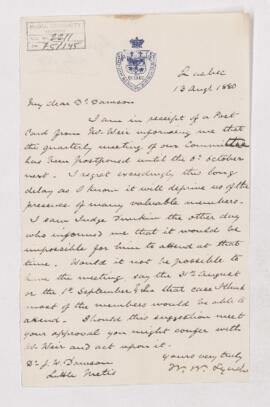 2211
75/145
Quebec
13 Augt 1880
My dear Dr. Dawson
I am in receipt of a Post
Card from Mr. Weir informing me that
the quarterly meeting of our Committee
has been postponed until the 5th October
next. I regret exceedingly this long
delay as I know it will deprive us of the
presence of many valuable members.
I saw Judge Dunkin the other day
who informed me that it would be
impossible for him to attend at that
time. Would it not be possible to
have the meeting say the 31st August
or the 1st September & in that case I think
most of the members would be able to
attend. Should this suggestion meet
your approval you might confer with
Mr Weir and act upon it.
Yours very truly
W. W. Lynch
Dr J. W. Dawson
Little Metis